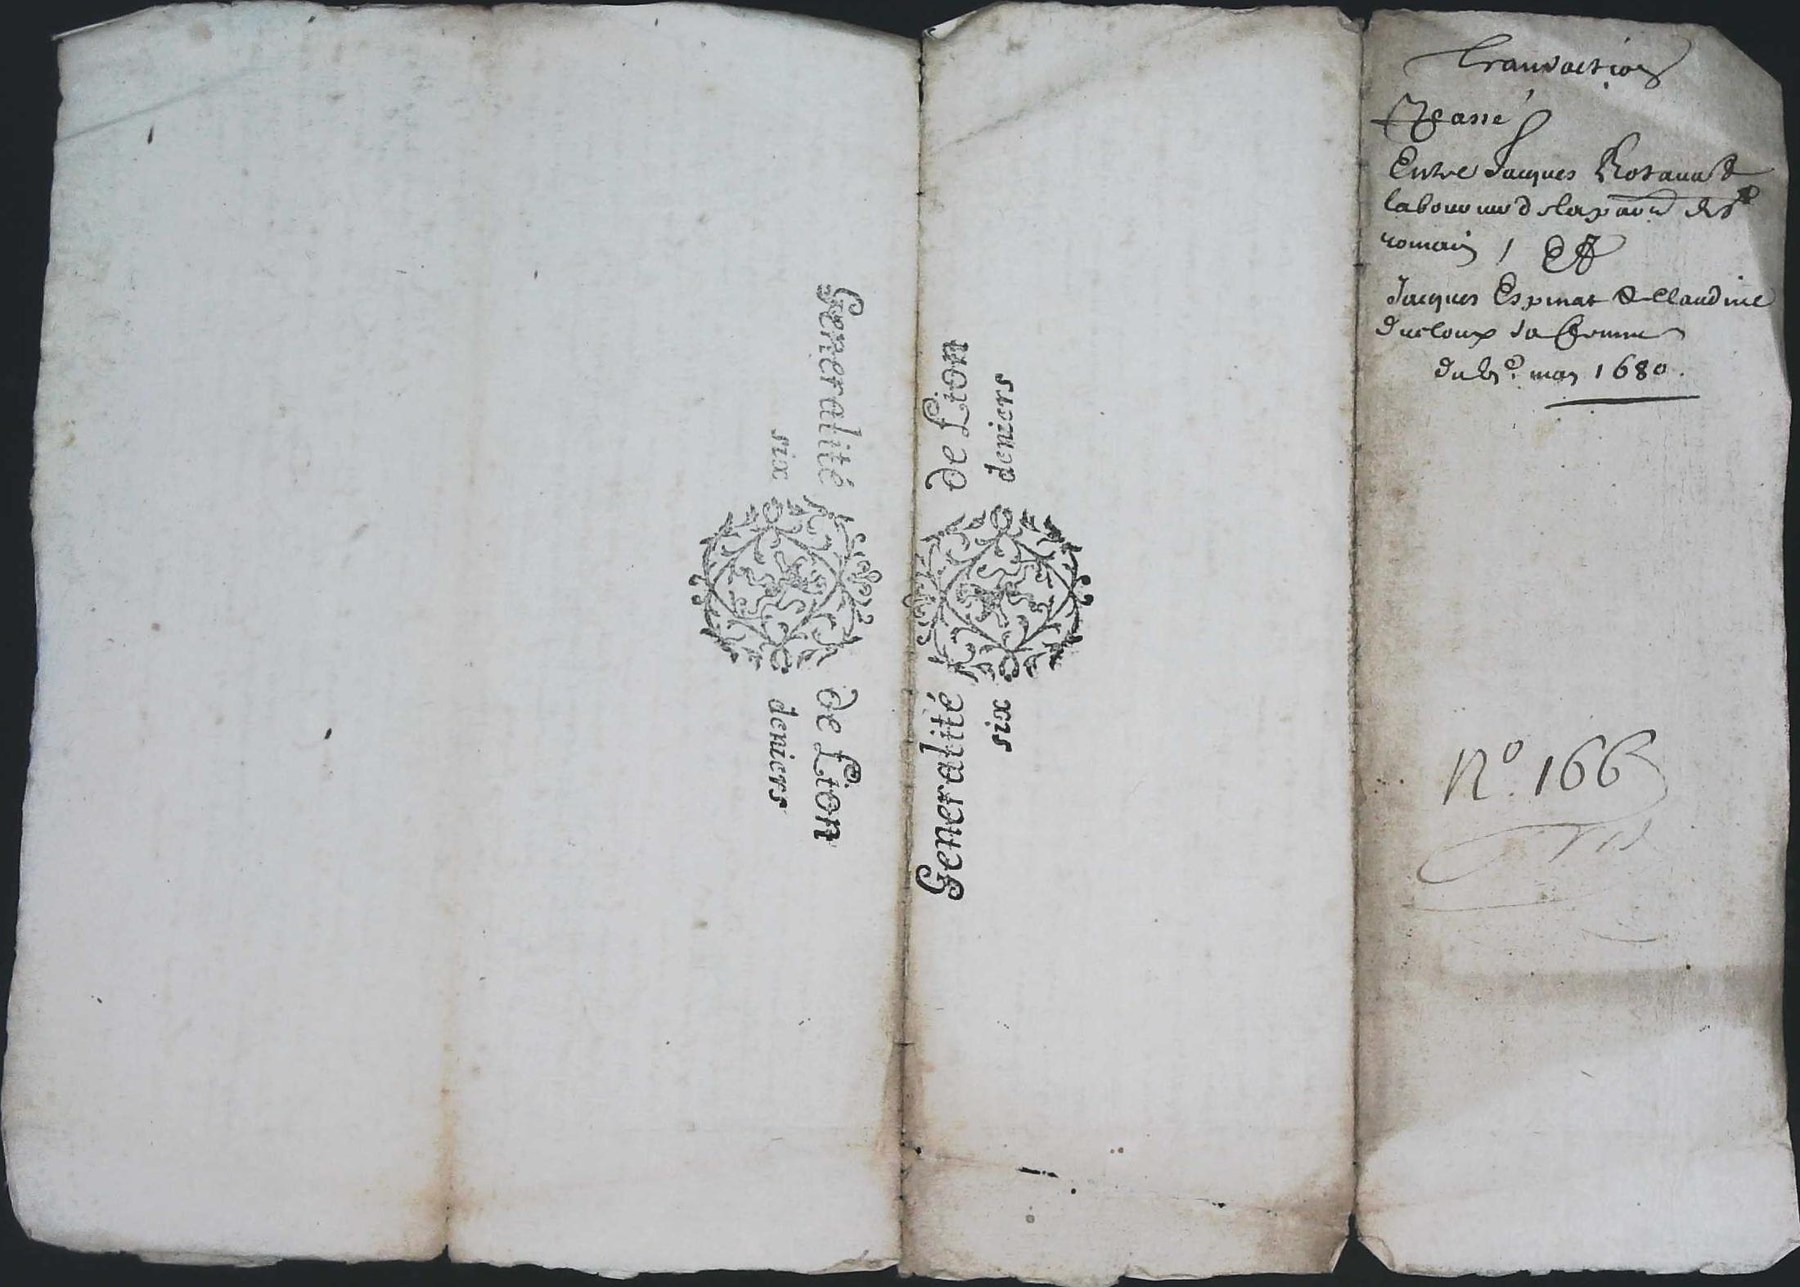 Generalité de Lion
six deniers
Generalité de Lion
six deniers
Transaction
Passé
Entre Jacques Rotaua &
laboureur de la parr. de St
romain / Et
Jacques Espinat & Claudine
ducloux sa femme
du may 1680.
No. 166